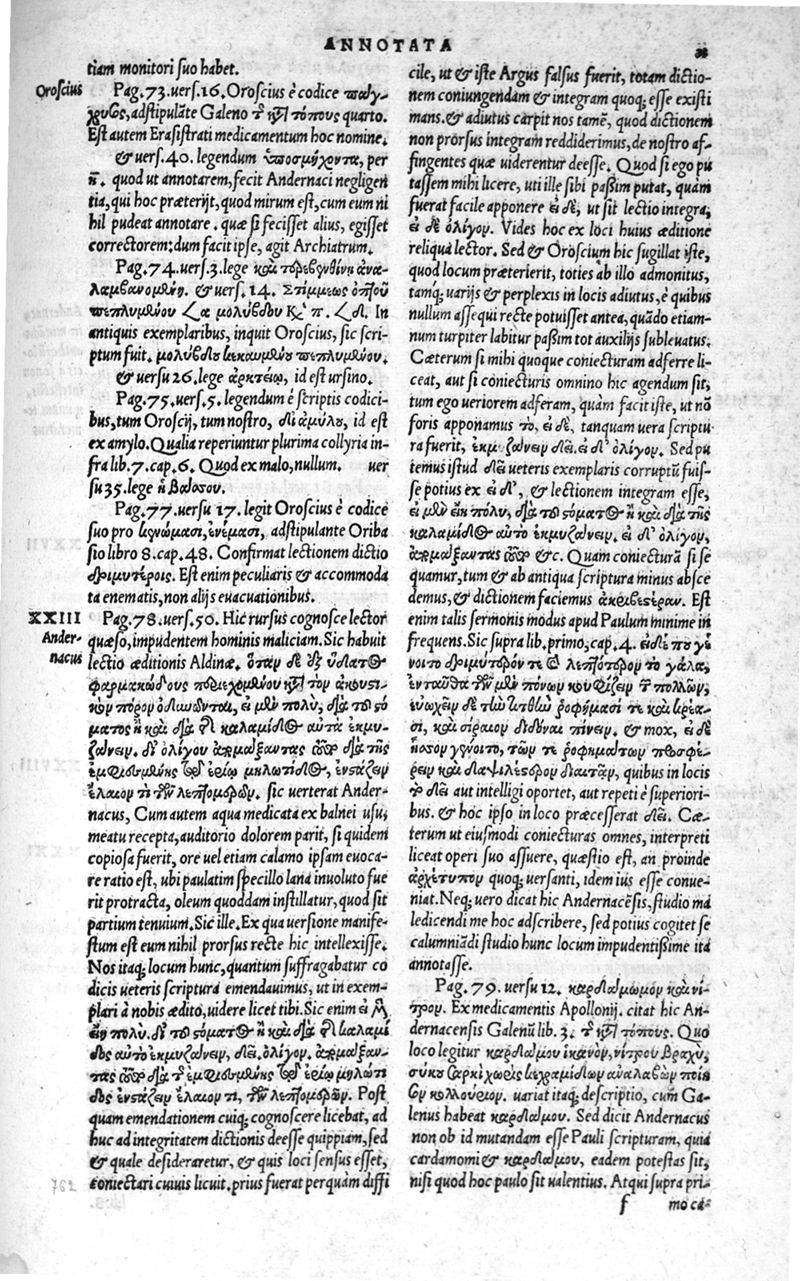 ANNOTATA
tiam monitori suo habet.
Oroscius
Pag.73.uers.16.Oroscius è codice
adstipulāte Galeno τ͂ κτ͂ τόπους quarto.
Est autem Erasistrati medicamentum hoc nomine.
& uers.40. legendum ὑποσμήχοντα, per
η̄. quod ut annotarem, fecit Andernaci negligen
tia, qui hoc præterijt, quod mirum est, cum eum ni
hil pudeat annotare. quæ si fecisset alius, egisset
correctorem; dum facit ipse, agit Archiatrum.
Pag.74.uers.3.lege καὶ τερεβινθίνῃ ἀνα-
λαμβανομένῃ. & uers.14. Στίμμεως ὀπτοῦ
πεπλυμένου μολύβδου In
antiquis exemplaribus, inquit Oroscius, sic scri-
ptum fuit. μολύβδου κεκαυμένου πεπλυμένου.
& uersu 26.lege ἀρκτείῳ, id est ursino.
Pag.75.uers.5.legendum è scriptis codici-
bus, tum Oroscij, tum nostro, δι ἀμύλου, id est
ex amylo. Qualia reperiuntur plurima collyria in-
fra lib.7.cap.6. Quod ex malo, nullum. uer
su 35.lege
Pag.77.uersu 17. legit Oroscius è codice
suo pro κενώμασι, ἐνέμασι, adstipulante Oriba
sio libro 8.cap.48. Confirmat lectionem dictio
δριμυτέροις. Est enim peculiaris & accommoda
ta enematis, non alijs euacuationibus.
XXIII
Ander-
nacus
Pag.78.uers.50. Hic rursus cognosce lector
quæso, impudentem hominis maliciam. Sic habuit
lectio æditionis Aldinæ. ὅταν δὲ ἐξ ὕδατος
φαρμακώδους παρεχομένου κτ͂ τὸν ἀκουστι-
κὸν πόρον ὀδυνῶνται, εἰ μὲν πολὺ, διὰ τοῦ στό
ματος ἢ καὶ διὰ καλαμίδος αὐτὰ ἐκμυ-
ζάνειν. δι ὀλίγου διὰ τῆς
ἐρίῳ μηλωτίδος, ἐνστάζειν
ἔλαιον τὶ τῶν λεπτομερῶν. sic uerterat Ander-
nacus, Cum autem aqua medicata ex balnei usu,
meatu recepta, auditorio dolorem parit, si quidem
copiosa fuerit, ore uel etiam calamo ipsam euoca-
re ratio est, ubi paulatim specillo lana inuoluto fue
rit protracta, oleum quoddam instillatur, quod sit
partium tenuium. Sic ille. Ex qua uersione manife-
stum est eum nihil prorsus recte hic intellexisse.
Nos itaq; locum hunc, quantum suffragabatur co
dicis ueteris scriptura emendauimus, ut in exem-
plari à nobis ædito, uidere licet tibi. Sic enim εἰ μὲν
πολὺ. διὰ τοῦ στόματος ἢ καὶ διὰ καλαμί
δος αὐτὸ ἐκμυζάνειν, δεῖ. ὀλίγον.
διὰ ἐρίῳ μηλωτί
δος ἐνστάζειν ἔλαιον τι, τῶν λεπτομερῶν. Post
quam emendationem cuiq; cognoscere licebat, ad
huc ad integritatem dictionis deesse quippiam, sed
& quale desideraretur, & quis loci sensus esset,
coniectari cuiuis licuit. prius fuerat perquàm diffi
cile, ut & iste Argus falsus fuerit, totam dictio-
nem coniungendam & integram quoq; esse existi
mans. & adiutus carpit nos tamē, quod dictionem
non prorsus integram reddiderimus, de nostro af-
fingentes quæ uiderentur deesse. Quod si ego pu
tassem mihi licere, uti ille sibi paßim putat, quàm
fuerat facile apponere εἰ δὲ, ut sit lectio integra,
εἰ δὲ ὀλίγον. Vides hoc ex loci huius æditione
reliqua lector. Sed & Oroscium hic sugillat iste,
quod locum præterierit, toties ab illo admonitus,
tamq; uarijs & perplexis in locis adiutus, è quibus
nullum asse qui recte potuisset antea, quādo etiam-
num turpiter labitur paßim tot auxilijs subleuatus.
Cæterum si mihi quoque coniecturam adferre li-
ceat, aut si coniecturis omnino hic agendum sit,
tum ego ueriorem adferam, quàm facit iste, ut nō
foris apponamus τὸ, εἰ δὲ, tanquam uera scriptu
ra fuerit, ἐκμυζάνειν δεῖ. εἰ δ' ὀλίγον. Sed pu
temus istud δεῖ ueteris exemplaris corruptū fuis-
se potius ex εἰ δ', & lectionem integram esse,
εἰ μὲν πολὺ, διὰ τοῦ στόματος ἢ καὶ διὰ τῆς
καλαμίδος αὐτὸ ἐκμυζάνειν, εἰ δ' ὀλίγον,
&c. Quam coniecturā si se
quamur, tum & ab antiqua scriptura minus absce
demus, & dictionem faciemus ἀκριβεστέραν. Est
enim talis sermonis modus apud Paulum minime in
frequens. Sic supra lib.primo, cap.4. εἰ δέ πο γέ
νοιτο δριμύτερόν τε λεπτότερον τὸ γάλα,
ἐνταῦθα τῶν μὲν πόνων κουφίζειν πολλῶν,
εὐωχεῖν δὲ τὴν τιτθὴν ῥοφήμασί τε καὶ κρέα-
σι, καὶ σίραιον διδόναι πίνειν. & mox, εἰ δὲ
γένοιτο, τῶν τε ῥοφημάτων προσφέ-
ρειν καὶ δίαιταν, quibus in locis
δεῖ aut intelligi oportet, aut repeti è superiori-
bus. & hoc ipso in loco præcesserat δεῖ. Cæ-
terum ut eiusmodi coniecturas omnes, interpreti
liceat operi suo assuere, quæstio est, an proinde
ἀρχέτυπον quoq; uersanti, idem ius esse conue-
niat. Neq; uero dicat hic Andernacēsis, studio ma
ledicendi me hoc adscribere, sed potius cogitet se
calumniādi studio hunc locum impudentißime ita
annotasse.
Pag.79.uersu 12. καρδάμωμον καὶ νί-
τρον. Ex medicamentis Apollonij. citat hic An-
dernacensis Galenū lib.3. τ͂ κτ͂ τόπους. Quo
loco legitur καρδάμου ἱκανὸν, νίτρου βραχὺ,
σύκου σαρκὶ χωρὶς κεχραμίδων ἀναλαβὼν ποίει
κολλούριον. uariat itaq; descriptio, cum Ga-
lenus habeat καρδάμου. Sed dicit Andernacus
non ob id mutandam esse Pauli scripturam, quia
cardamomi & καρδάμου, eadem potestas sit,
nisi quod hoc paulo sit ualentius. Atqui supra pri-
f mo ca-
762